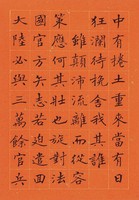 中有捲土重來當有日
狂瀾待挽舍我其誰
離而從容
策應何其壯也旋對法
國官方矢志若迫
大陸必與三萬餘官兵